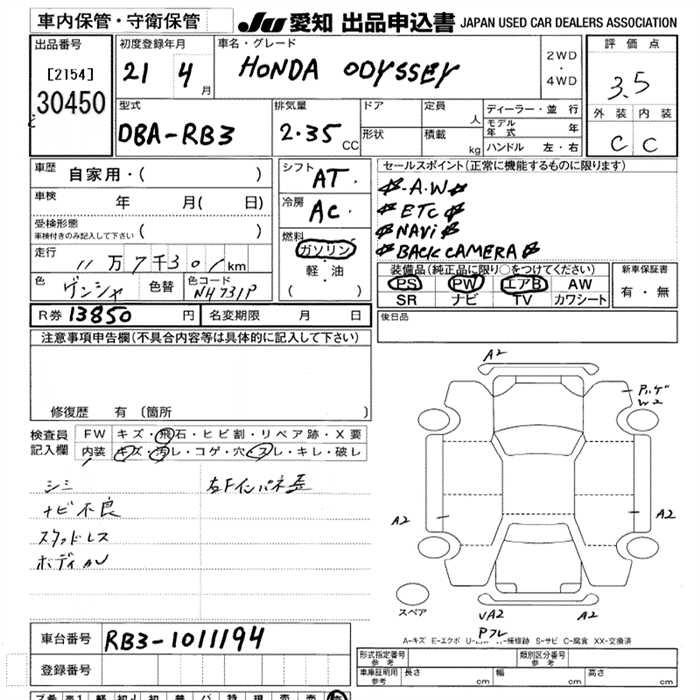 車内保管・守衛保管 JU 愛知 出品申込書 JAPAN USED CAR DEALERS ASSOCIATION
出品番号
[2154]
30450
初度登録年月
21 4 月
車名・グレード
HONDA ODYSSEY
2WD
・
4WD
評価点
3.5
外装 内装
C C
型式
DBA-RB3
排気量
2.35 CC
ドア
定員 人
形状
積載 kg
ディーラー・並行
モデル年式 年
ハンドル 左・右
車歴
自家用・( )
車検
年 月( 日)
受検形態
車検付きのみ記入して下さい ( )
走行
11万7千301km
色 ゲンシャ
色替
色コード
NH731P
シフト
AT.
冷房
AC.
燃料
ガソリン
・
軽・油
( )
セールスポイント(正常に機能するものに限ります)
A.W
ETC
NAVi
BACK CAMERA
装備品(純正品に限り○をつけてください)
PS PW エアB AW
SR ナビ TV カワシート
新車保証書
有・無
R券 13850 円 名変期限 月 日
後日品
注意事項申告欄(不具合内容等は具体的に記入して下さい)
修復歴 有 (箇所 )
検査員
記入欄
FW キズ・飛石・ヒビ割・リペア跡・X要
内装 キズ・汚レ・コゲ・穴・スレ・キレ・破レ
シミ
ナビ不良
スタッドレス
ボディカ
A2
W2
A2
A2
スペア
A2
A2
A-キズ E-エクボ
補修跡 S-サビ C-腐食 XX-交換済
車台番号 RB3-1011194
登録番号
形式指定番号
参考
類別区分番号
参考
車庫証明用
参考
長さ cm 幅 cm 高さ cm